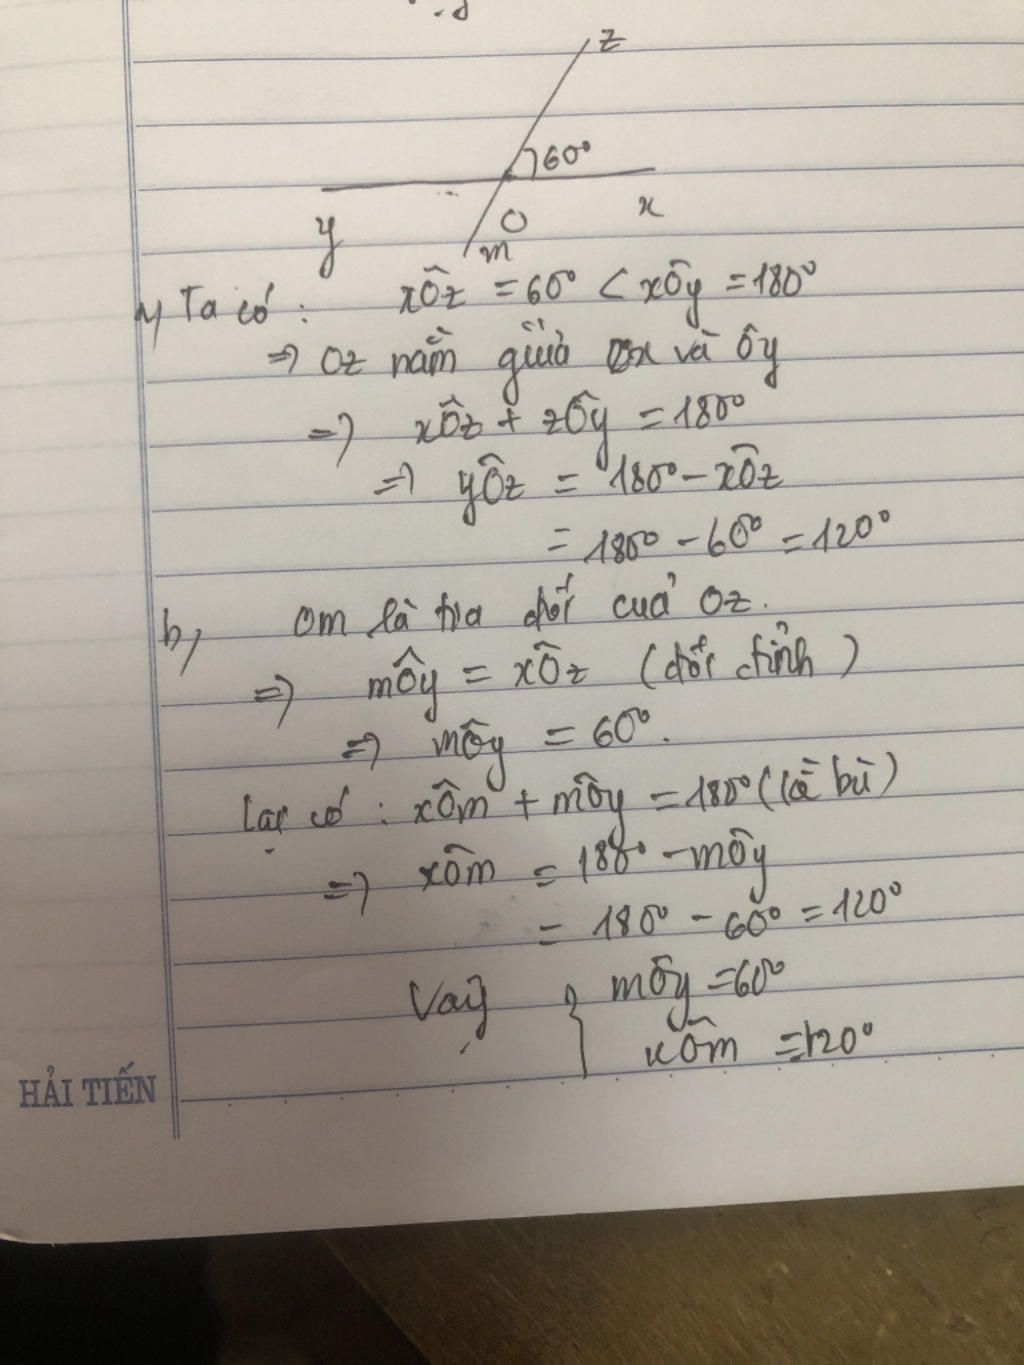 z
60°
y
O
x
m
a, Ta có: xÔz = 60° < xÔy = 180°
=> Oz nằm giữa Ox và Ôy
=> xÔz + zÔy = 180°
=> yÔz = 180° - xÔz
= 180° - 60° = 120°
b, Om là tia đối của Oz.
=> mÔy = xÔz (đối đỉnh)
=> mÔy = 60°.
Lại có: xÔm + mÔy = 180° (kề bù)
=> xÔm = 180° - mÔy
= 180° - 60° = 120°
Vậy { mÔy = 60°
xÔm = 120°
HẢI TIẾN